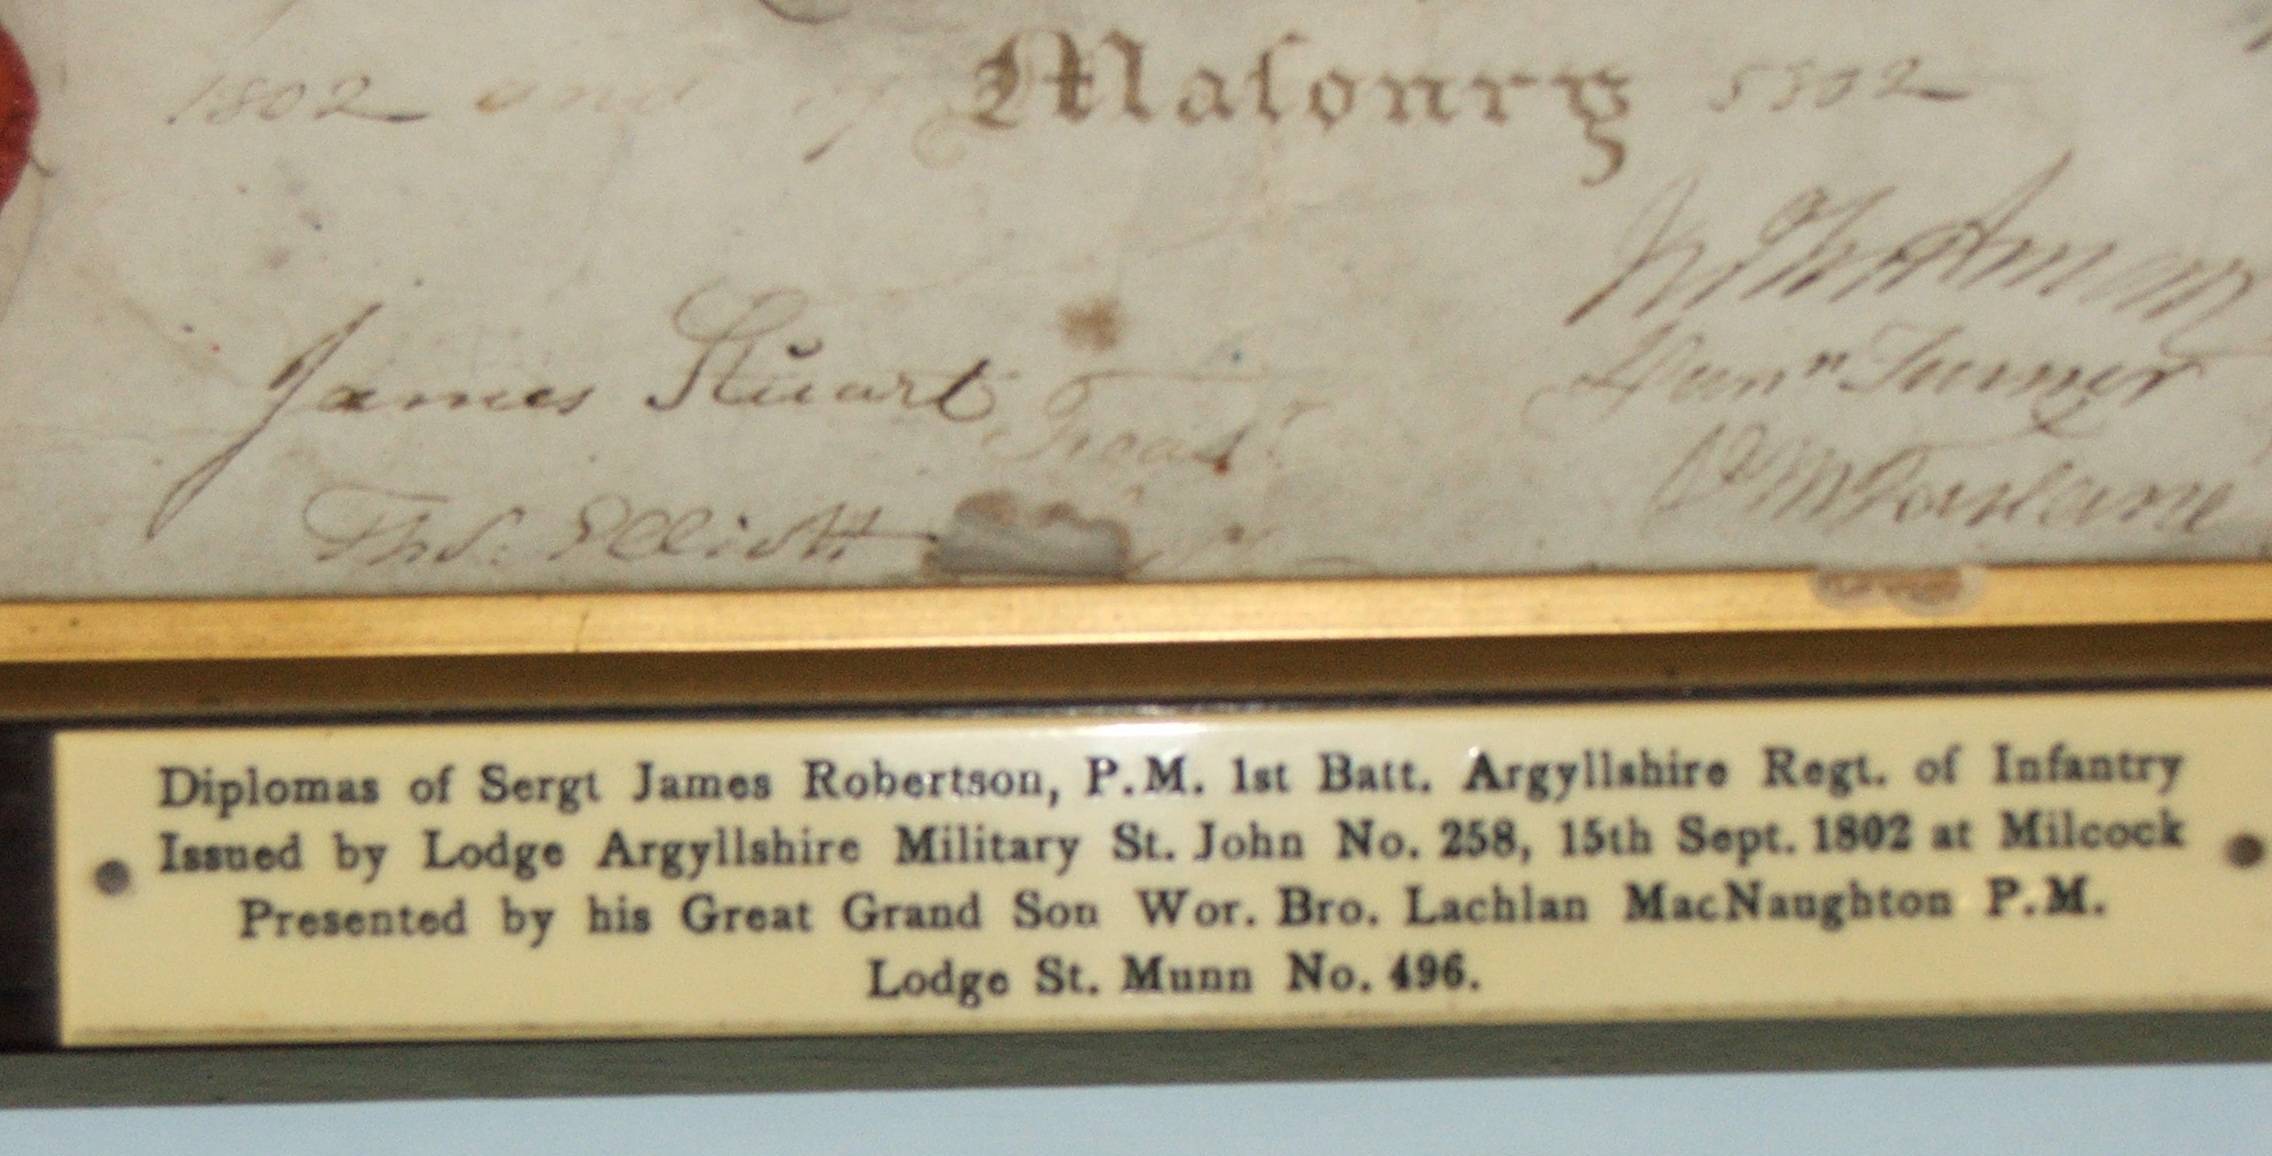 1802 and of Maſonry 5802
James Stuart Treasr
Dunn Turner
Thos. Elliott
McFarlane
Diplomas of Sergt James Robertson, P.M. 1st Batt. Argyllshire Regt. of Infantry
Issued by Lodge Argyllshire Military St. John No. 258, 15th Sept. 1802 at Milcock
Presented by his Great Grand Son Wor. Bro. Lachlan MacNaughton P.M.
Lodge St. Munn No. 496.